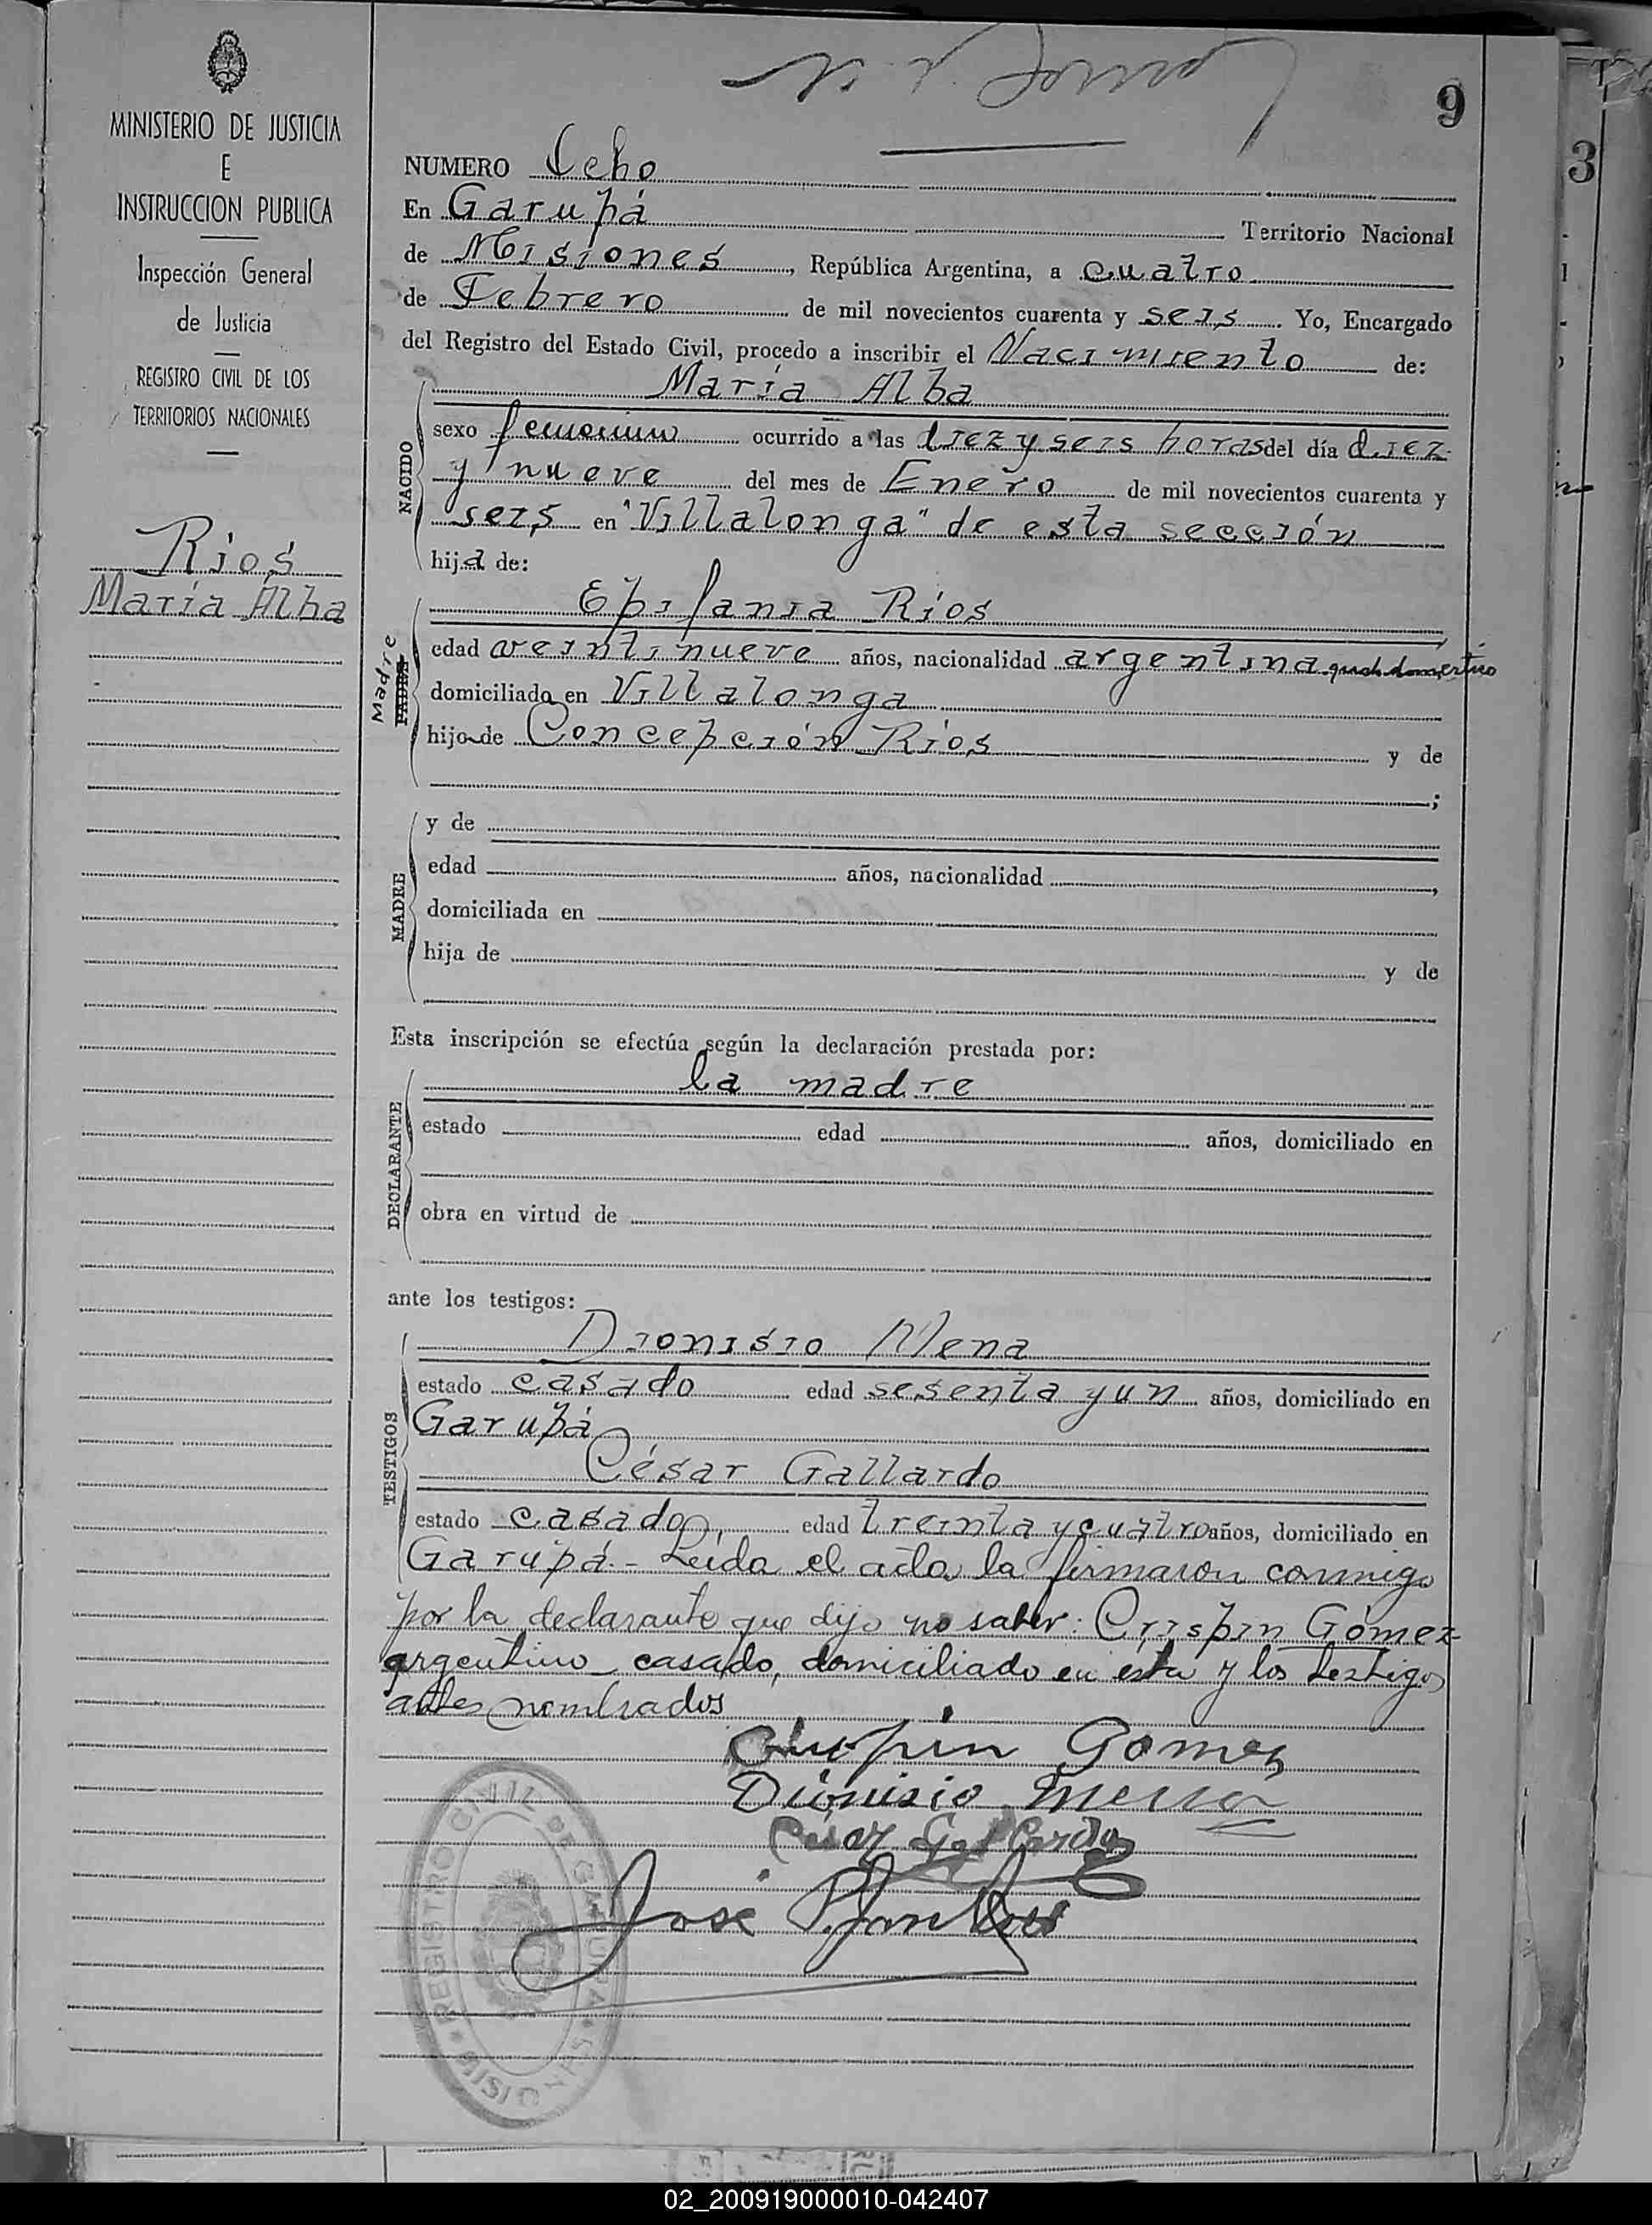 9
3
MINISTERIO DE JUSTICIA
E
INSTRUCCION PUBLICA
Inspección General
de Justicia
REGISTRO CIVIL DE LOS
TERRITORIOS NACIONALES
Ríos
María Alba
NUMERO Ocho
En Garupá Territorio Nacional
de Misiones, República Argentina, a cuatro
de Febrero de mil novecientos cuarenta y seis. Yo, Encargado
del Registro del Estado Civil, procedo a inscribir el Nacimiento de:
NACIDO
María Alba
sexo femenino ocurrido a las diez y seis horas del día diez
y nueve del mes de Enero de mil novecientos cuarenta y
seis en "Villalonga" de esta sección
hija de:
Madre
PADRE
Epifania Ríos
edad veintinueve años, nacionalidad argentina
domiciliada en Villalonga
hijo de Concepción Ríos y de
;
MADRE
y de
edad años, nacionalidad ,
domiciliada en
hija de y de
Esta inscripción se efectúa según la declaración prestada por:
DECLARANTE
la madre
estado edad años, domiciliado en
obra en virtud de
ante los testigos:
TESTIGOS
Dionisio Mena
estado casado edad sesenta y un años, domiciliado en
Garupá
César Gallardo
estado casado, edad treinta y cuatro años, domiciliado en
Garupá - Leída el acta la firmaron conmigo
por la declarante que dijo no saber: Crispin Gómez
argentino casado, domiciliado en ésta y los testigos
antes nombrados
Crispin Gomez
Dionisio Mena
Cesar Gallardo
José
REGISTRO CIVIL DE GARUPA * MISIONES *
02_200919000010-042407